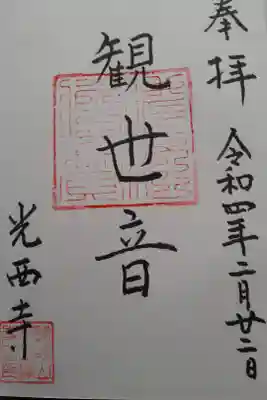 奉拝
令和四年二月廿二日
観世音
光西寺